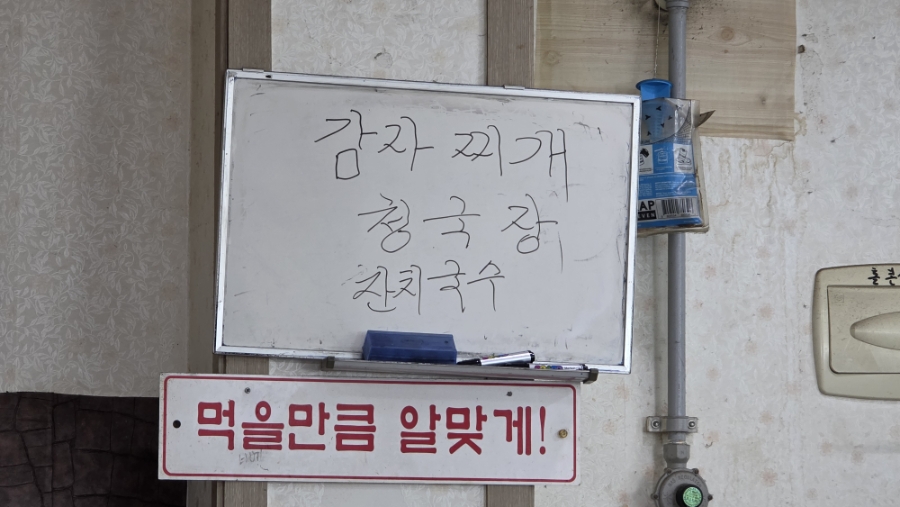 감자 찌개
청국장
잔치국수
먹을만큼 알맞게!